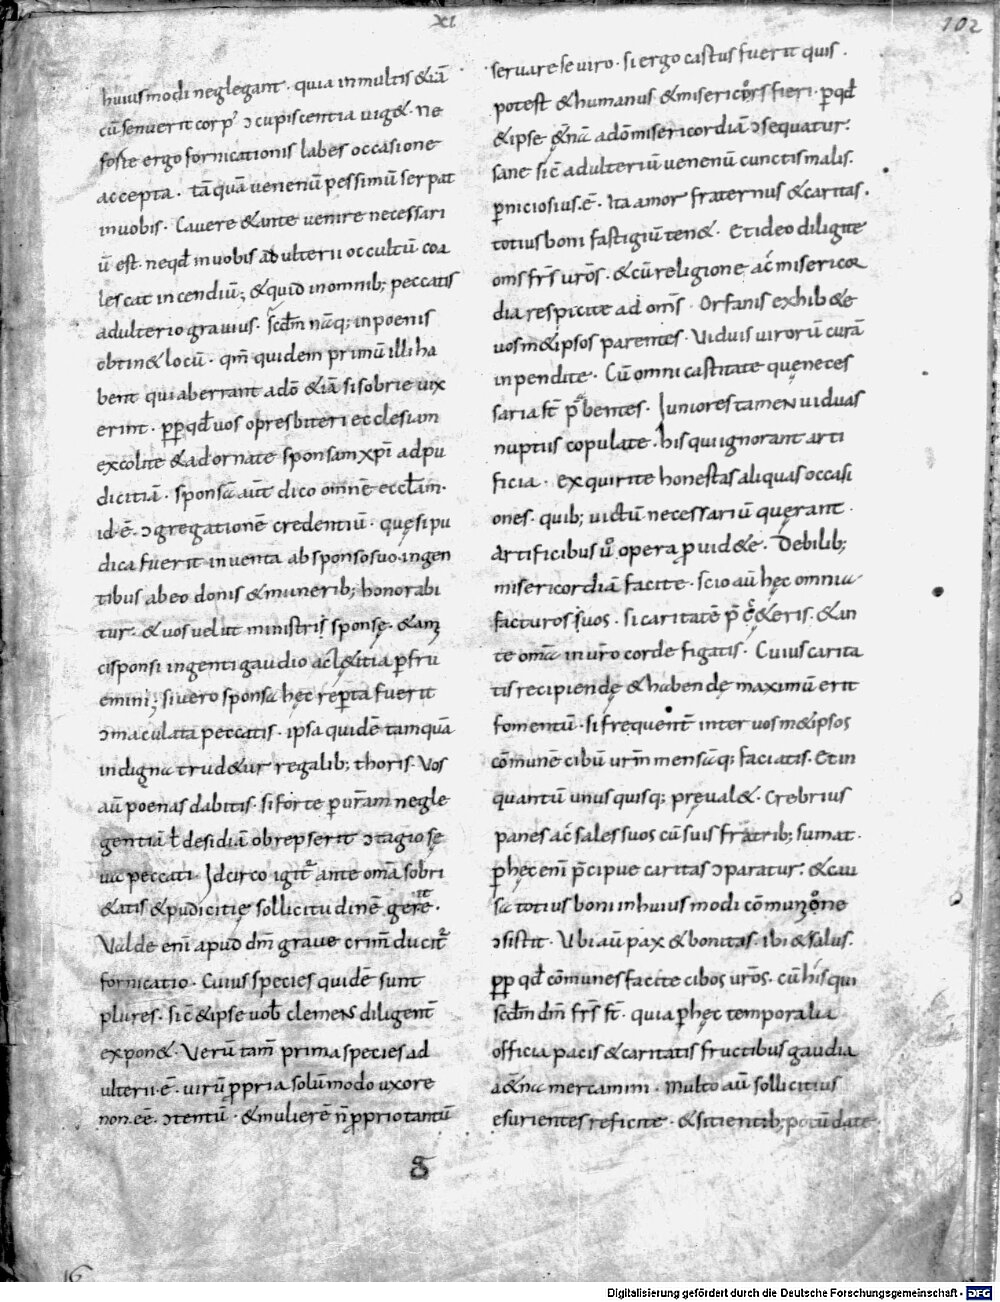 XI
102
huiusmodi neglegant · quia in multis &iā
cū senuerit corp' ɔcupiscentia uig& · Ne
foste ergo fornicationis labes occasione
accepta · tāquā uenenū pessimū serpat
in uobis · Cauere &ante uenire necessari
ū est · neqd̄ in uobis adulterii occultū coa
lescat incendiū; &quid in omnib; peccatis
adulterio grauius · Scd̄m nāq; in poenis
obtin& locū · qm̄ quidem primū illi ha
bent qui aberrant a dō &iā si sobrie uix
erint · ꝓpqd̄ uos o presbiteri ecclesiam
excolite &adornate sponsam xp̄i ad pu
dicitiā · sponsā aūt dico omnē eccl̄am ·
id·ē· ɔgregationē credentiū · quę si pu
dica fuerit inuenta ab sponso suo ingen
tibus ab eo donis &munerib; honorabi
tur · & uos uelut ministri sponsę · &am
ci sponsi ingenti gaudio ac l&itia ꝑfru
emini; si uero sponsa hęc rep̄ta fuerit
ɔmaculata peccatis · ipsa quidē tamquā
indigna trud&ur regalib; thoris · Vos
aū poenas dabitis · si forte p uram negle
gentiā ł desidiā obrepserit ɔtagio sę
ua peccati · Idcirco igit ante oma sobri
&atis &pudicitię sollicitudinē gerite ·
Valde enī apud dm̄ graue crim̄ ducit
fornicatio · Cuius species quidē sunt
plures · sic̄ &ipse uob clemens diligent̄
expon& · Verū tam̄ prima species ad
ulterii·ē· uirū ꝓpria solūmodo uxore
non·eē· ɔtentū · &mulierē n̄ ꝓprio tantū
S
16
seruare se uiro · si ergo castus fuerit quis ·
potest &humanus &misericors fieri · ꝑqd̄
&ipse &nā a dō misericordiā ɔsequatur ·
sane sic̄ adulteriū uenenū cunctis malis ·
ꝑniciosius·ē· Ita amor fraternus &caritas ·
totius boni fastigiū ten& · Et ideo diligite
oms frs̄ uros̄ · &cū religione ac̄ misericor
dia respicite ad oms̄ · Orfanis exhib&e
uosm&ipsos parentes · Viduis uirorū curā
inpendite · Cū omni castitate quę neces
saria st̄ pbentes · Iuniores tamen uiduas
nuptiis copulate · his qui ignorant arti
ficia · exquirite honestas aliquas occasi
ones · quib; uictū necessariū quęrant ·
Artificibus ů opera ꝓuid&e · Debilib;
misericordiā facite · scio aū hęc omnia
facturos uos · si caritatē p̄ c̄&eris · &an
te oma in uro corde figatis · Cuius carita
tis recipiendę &habendę maximū erit
fomentū · si frequent̄ inter uosm&ipsos
cōmunē cibū urm̄ mensāq; faciatis · Et in
quantū unusquisq; pręual& · Crebrius
panes ac̄ sales suos cū suis fratrib; sumat ·
ꝑ hęc enī p̄cipue caritas ɔparatur · &cau
sa totius boni in huiusmodi cōmunione
ɔsistit · Vbi aū pax &bonitas · ibi &salus ·
ꝓp qd̄ cōmunes facite cibos uros̄ · cū his qui
scd̄m dm̄ frs̄ st̄ · quia ꝑ hęc temporalia
officia pacis &caritatis fructibus gaudia
a&na mercamini · Multo aū sollicitius
esurientes reficite · &sitientib; potū date
Digitalisierung gefördert durch die Deutsche Forschungsgemeinschaft - DFG